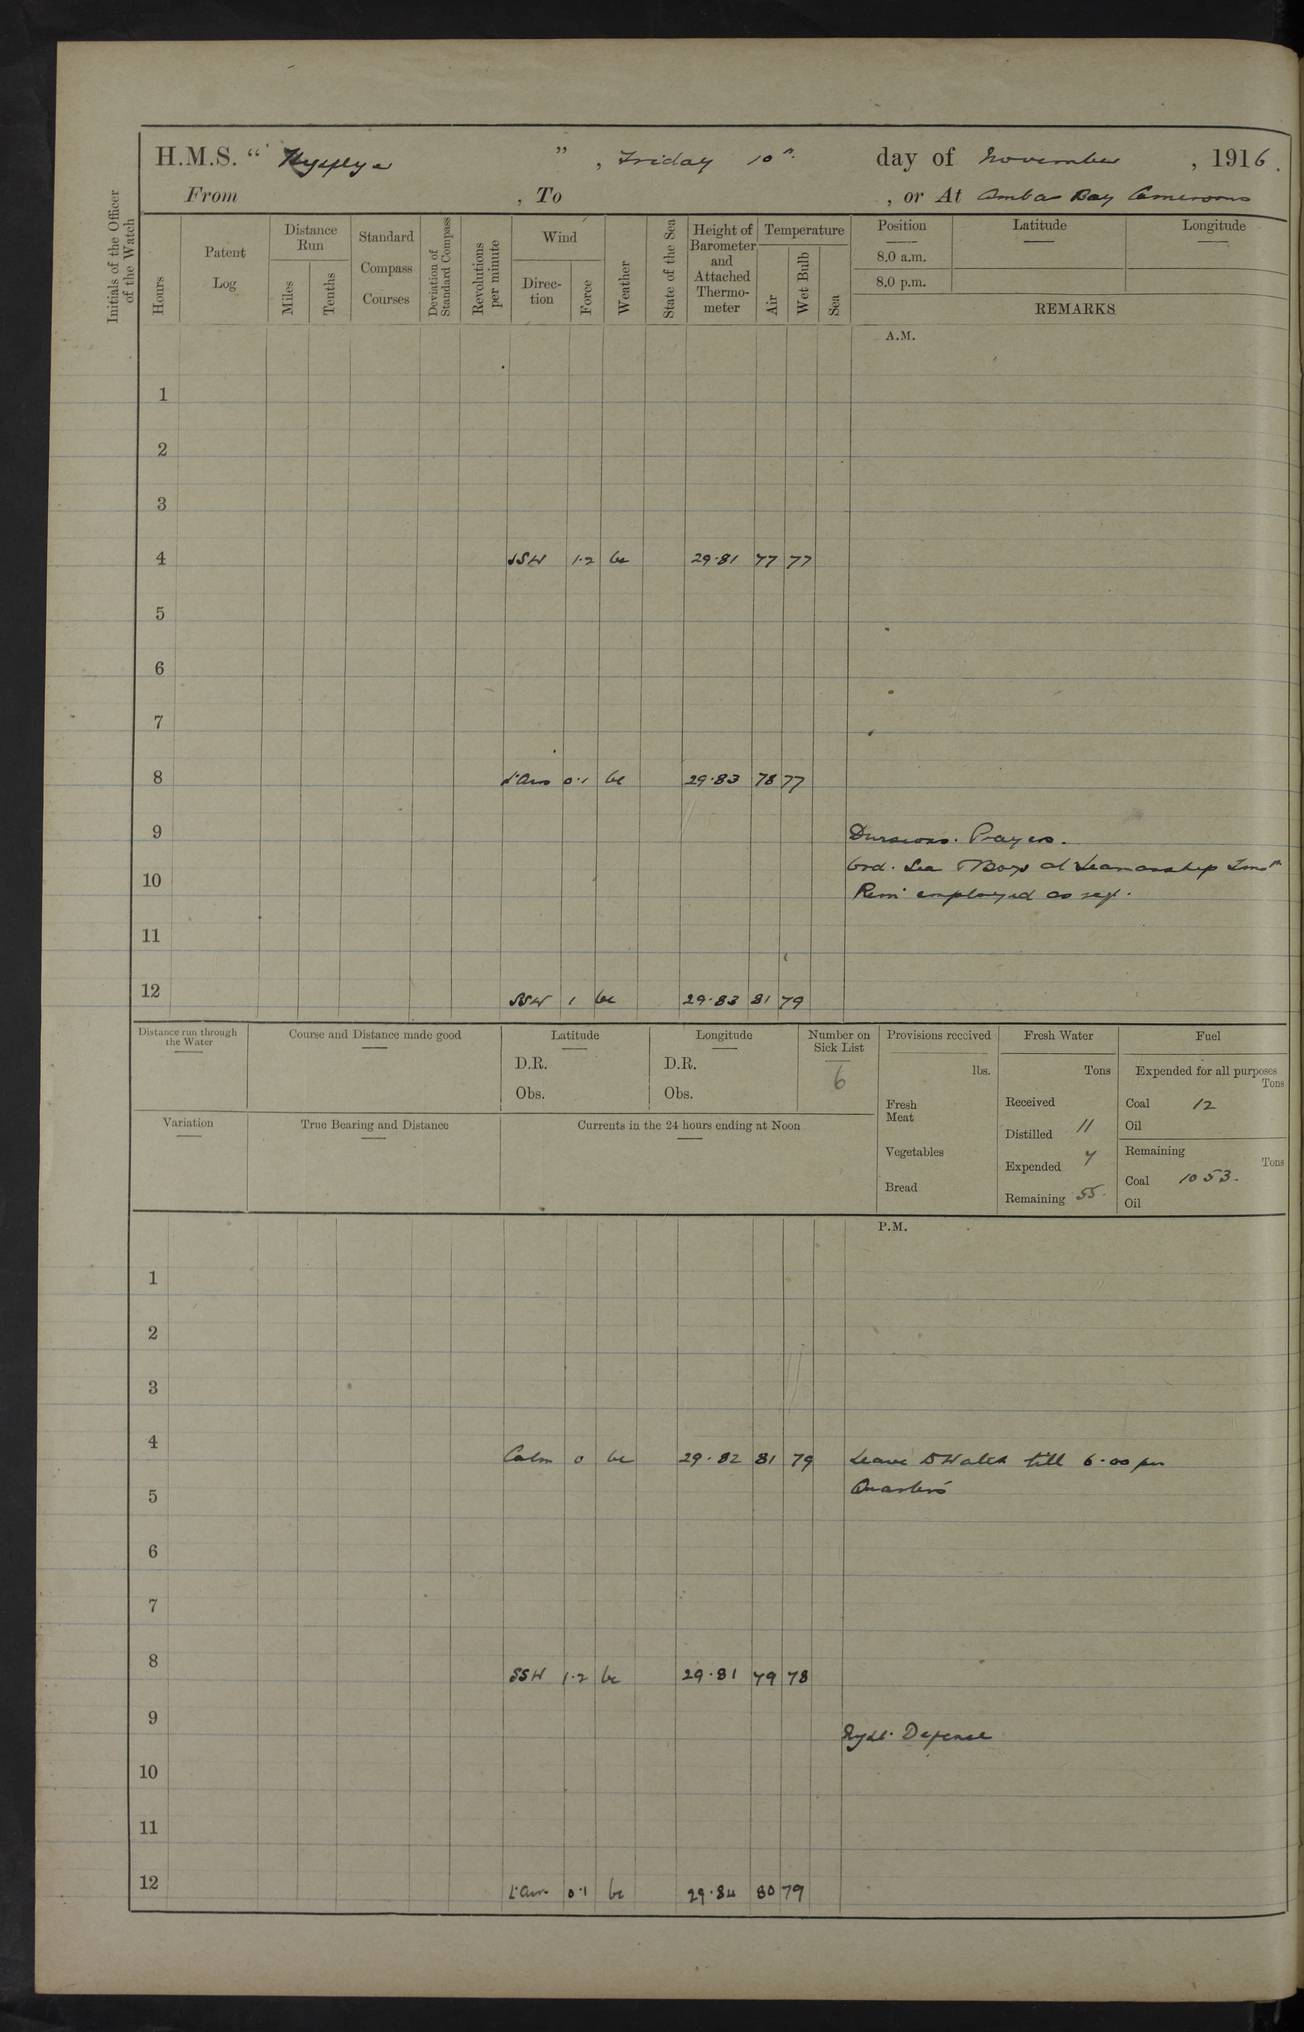 H.M.S. " ", Friday 10th day of November, 1916.
From , To , or At Ambas Bay Cameroons
Initials of the Officer of the Watch
Hours
Patent Log
Distance Run
Miles
Tenths
Standard Compass Courses
Deviation of Standard Compass
Revolutions per minute
Wind
Direction
Force
Weather
State of the Sea
Height of Barometer and Attached Thermometer
Temperature
Air
Wet Bulb
Sea
Position
8.0 a.m.
8.0 p.m.
Latitude
Longitude
REMARKS
A.M.
1
2
3
4 SSW 1·2 bc 29·81 77 77
5
6
7
8 L'Airs 0·1 bc 29·83 78 77
9 Divisions. Prayers.
Ord. Sea & Boys at Seamanship Inst
10 Rem employed as req.
11
12 SSW 1 bc 29·83 81 79
Distance run through the Water
Course and Distance made good
Latitude
D.R.
Obs.
Longitude
D.R.
Obs.
Number on Sick List
6
Provisions received
lbs.
Fresh Meat
Vegetables
Bread
Fresh Water
Tons
Received
Distilled 11
Expended 7
Remaining 55
Fuel
Expended for all purposes
Tons
Coal 12
Oil
Remaining
Tons
Coal 1053.
Oil
Variation
True Bearing and Distance
Currents in the 24 hours ending at Noon
P.M.
1
2
3
4 Calm 0 bc 29·82 81 79 Leave to Watch till 6·00 pm
5 Quarters
6
7
8 SSW 1·2 bc 29·81 79 78
9 Night Defence
10
11
12 L'Airs 0·1 bc 29·84 80 79